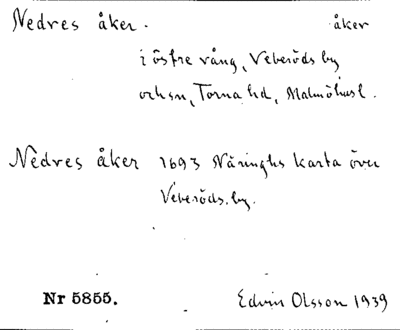 Nedres åker. åker
i östre vång, Veberöds by
och sn, Torna hd, Malmöhusl.
Nedres åker 1693 Näringhs karta över
Veberöds by.
Nr 5855. Edvin Olsson 1939